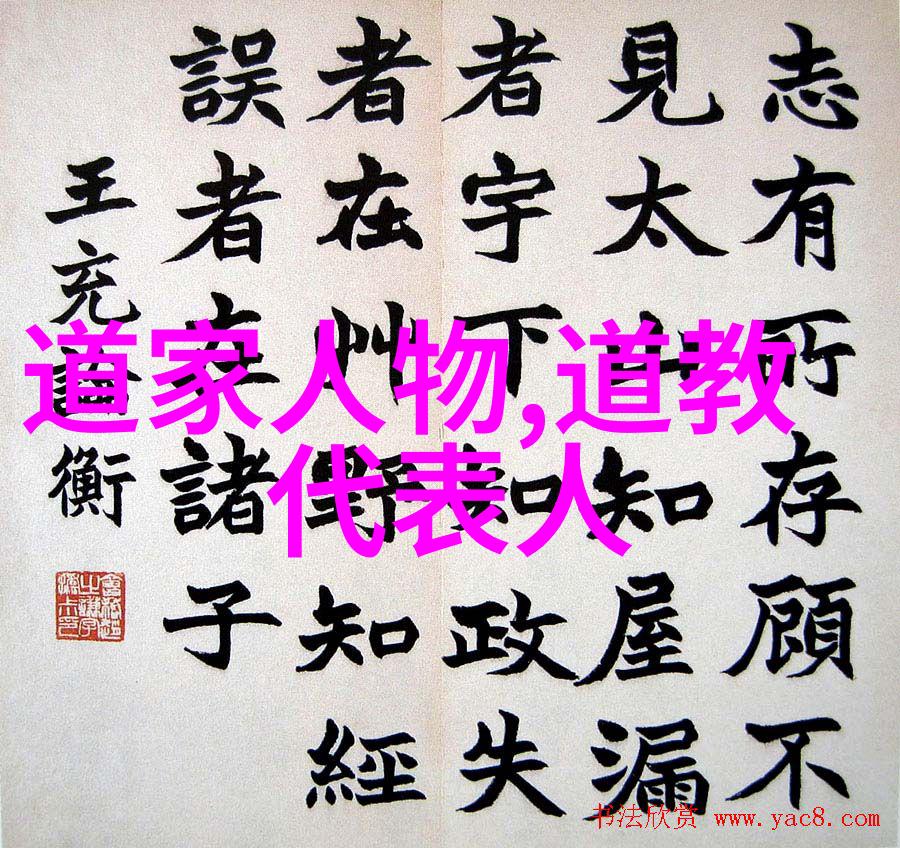 志有所存顧不
見太山知屋漏
者宇下知政失
者在艸野知經
誤者在諸子
王充論衡
道家人物,道教
代表人
书法欣赏 www.yac8.com